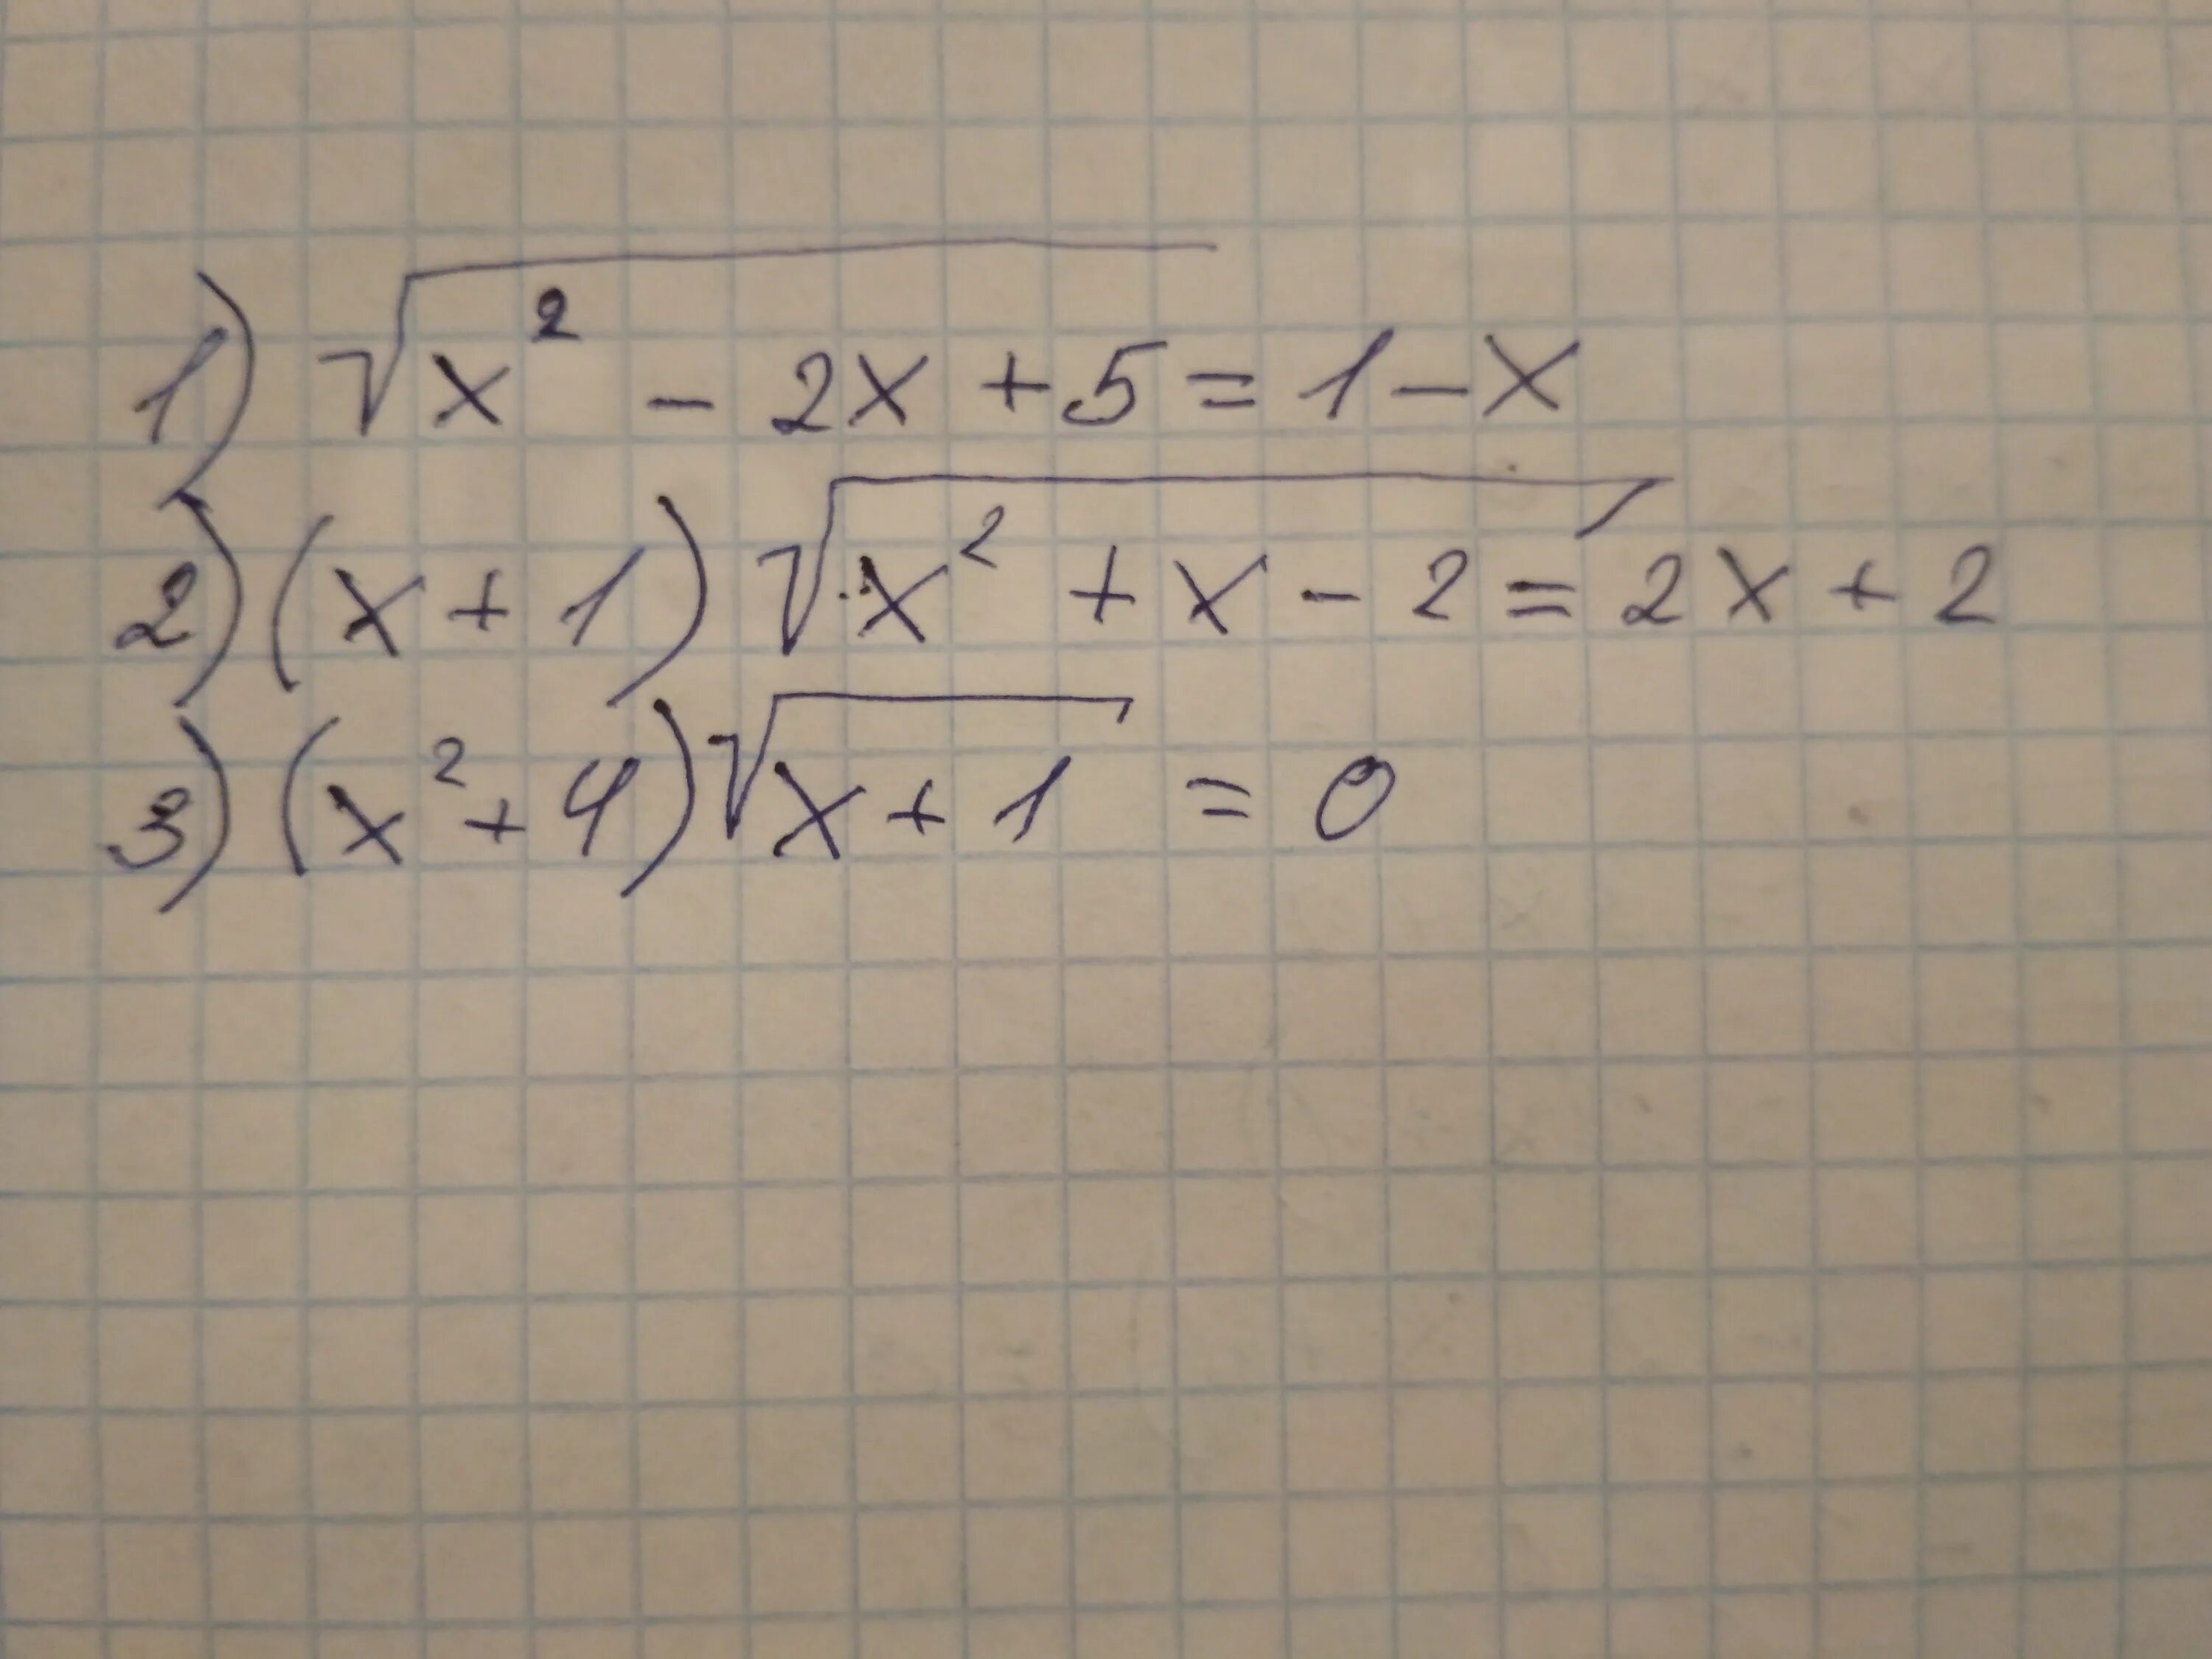 1) √(x² - 2x + 5) = 1 - x
2) (x + 1) √(x² + x - 2) = 2x + 2
3) (x² + 4) √(x + 1) = 0